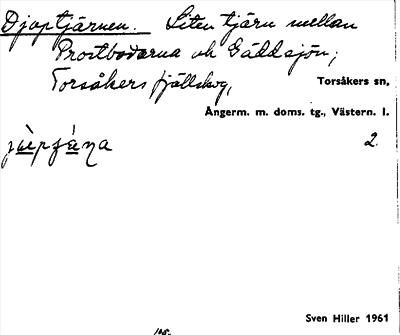 Djuptjärnen. Liten tjärn mellan
Prostbodarna och Gäddsjön;
Torsåkers fjällskog,
Torsåkers sn,
Ångerm. m. doms. tg., Västern. l.
2.
Sven Hiller 1961